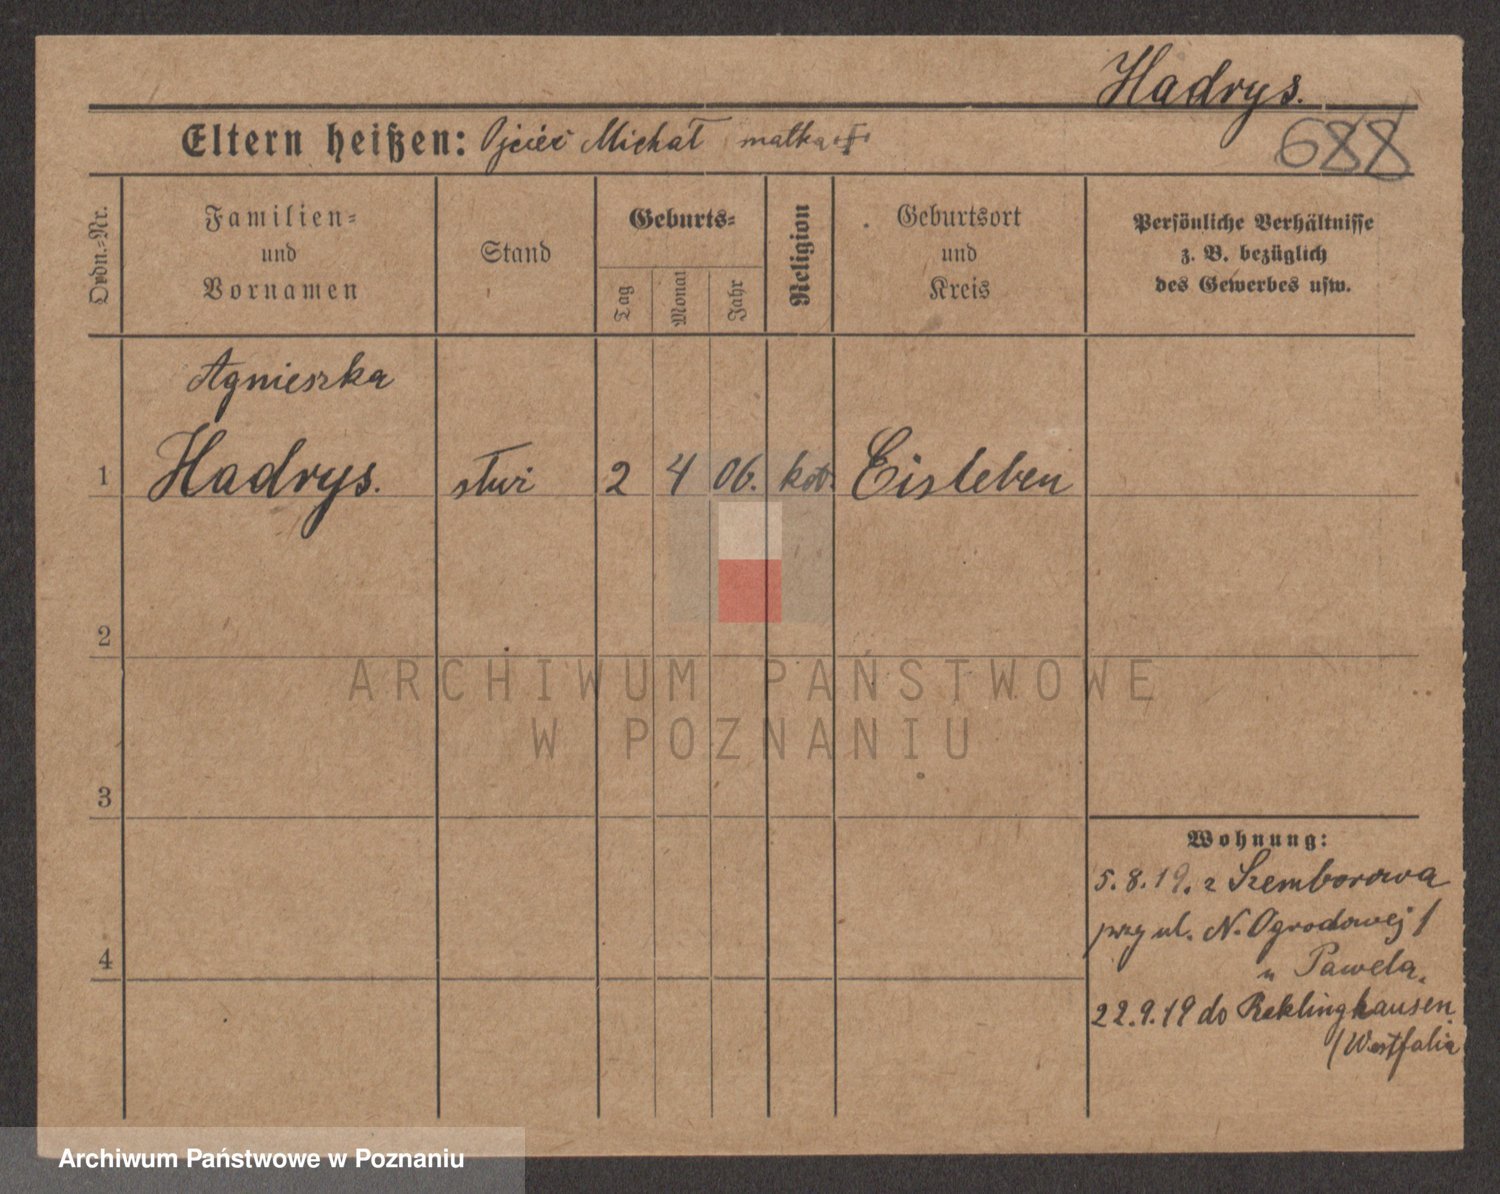 Hadrys.
Eltern heißen: Ojciec Michał matka
688
Ordn.-Nr.
Familien-
und
Vornamen
Stand
Geburts-
Tag
Monat
Jahr
Religion
Geburtsort
und
Kreis
Persönliche Verhältnisse
z. B. bezüglich
des Gewerbes usw.
Agnieszka
1 Hadrys. 2 4 06. kat. Eisleben
2
ARCHIWUM PAŃSTWOWE
W POZNANIU
3
Wohnung:
5.8.19. z Szemborowa
przy ul. N. Ogrodowej 1
4
u Pawela.
22.9.19 do Reklinghausen.
/Westfalia
Archiwum Państwowe w Poznaniu